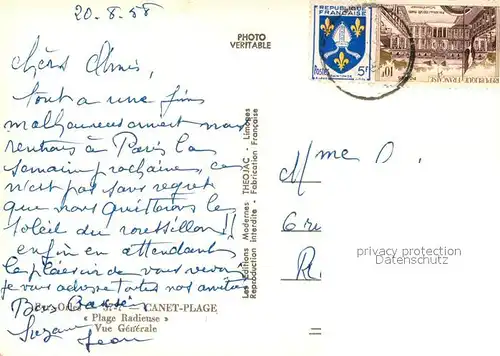 20.8.58
PHOTO
VERITABLE
REPUBLIQUE
FRANÇAISE
Postes
5F
10F
Chers Amis,
tout a une fin
malheureusement nous
rentrons à Paris la
semaine prochaine, ce
n'est pas sans regret
que nous quitterons le
soleil du roussillon!!
enfin en attendant
le plaisir de vous revoir
je vous adresse toutes nos amitiés
Bons Baisers
Suzanne
Jean
CANET-PLAGE
« Plage Radieuse »
Vue Générale
Les Editions Modernes THEOJAC - Limoges
Reproduction interdite - Fabrication Française
Mme D.
privacy protection
Datenschutz